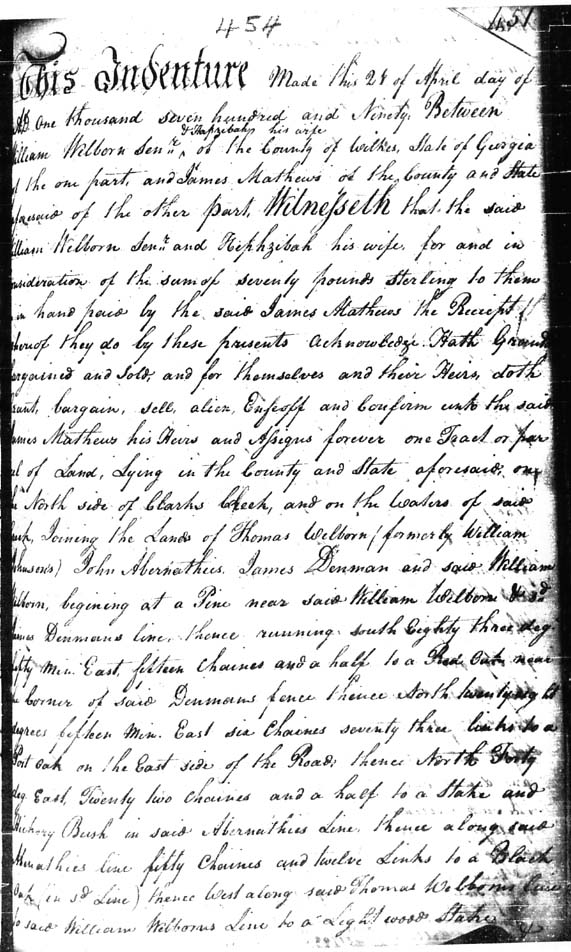 454
451
This Indenture Made this 24 of April day of
One thousand seven hundred and Ninety, Between
& Hephzibah his wife
William Welborn Senr. of the County of Wilkes, State of Georgia
of the one part, and James Mathews of the County and State
aforesaid of the other part, Witnesseth that the said
William Welborn Senr. and Hephzibah his wife, for and in
consideration of the sum of seventy pounds sterling to them
in hand paid by the said James Mathews the Receipt
whereof they do by these presents acknowledge Hath Granted
bargained and sold, and for themselves and their Heirs, doth
grant, bargain, sell, alien, Enfeoff and Confirm unto the said
James Mathews his Heirs and Assigns forever one Tract or par
cel of Land, Lying in the County and State aforesaid, on
the North side of Clarks Creek, and on the Waters of said
Creek, Joining the Lands of Thomas Welborn (formerly William
) John Abernathies, James Denman and said William
Welborn, begining at a Pine near said William Welborn & sd.
James Denmans line, thence running south Eighty three deg
fifty Min. East, fifteen Chaines and a half to a Red Oak near
the Corner of said Denmans fence thence North twenty eight
degrees fifteen Min. East six Chaines seventy three links to a
Post Oak on the East side of the Road, thence North Forty
deg. East, Twenty two Chaines and a half to a Stake and
Hickory Bush in said Abernathies Line, thence along said
Abernathies line fifty Chaines and twelve Links to a Black
Oak (in sd. Line) thence West along said Thomas Welborns line
to said William Welborns Line to a Lightwood Stake